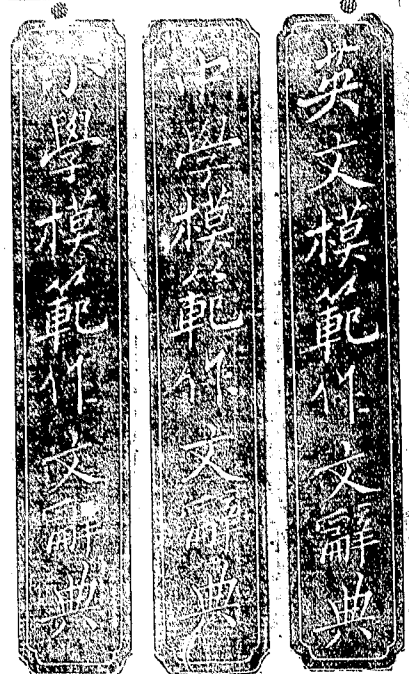 英文模範作文辭典
中學模範作文辭典
小學模範作文辭典